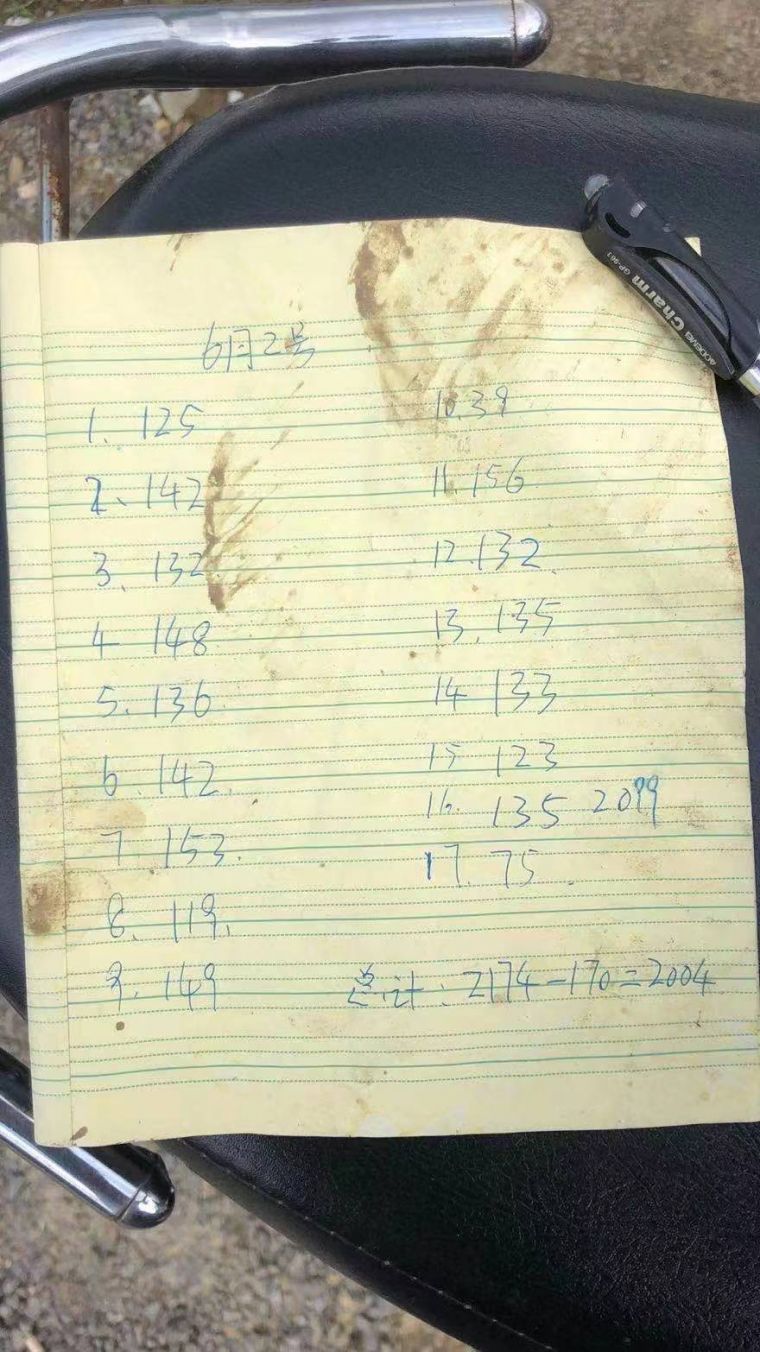 6月2号
1. 125
2、142
3. 132
4 148
5. 136
6. 142.
7. 153.
8. 119.
9. 149
10.39
11.156
12.132
13.135
14 133
15 123
16. 135 2099
17. 75.
总计：2174-170=2004
AODEMEI Charm GP-961